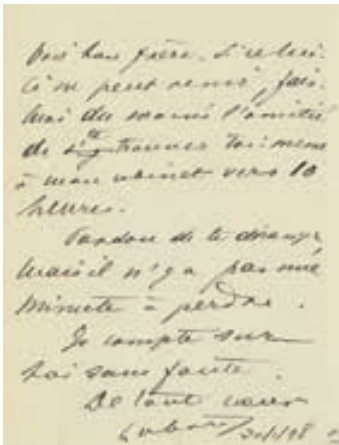 ton bon frère. Si celui-
ci ne peut venir, fais-
moi du moins l'amitié
de te trouver toi-même
à mon cabinet vers 10
heures.
Pardon de te déranger,
mais il n'y a pas une
minute à perdre.
Je compte sur
toi sans faute.
De tout cœur
Labori